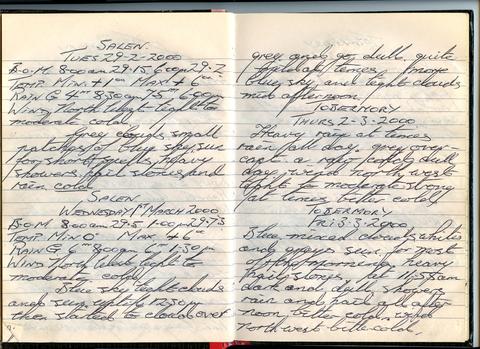 SALEN.
TUES 29-2-2000
B.O.M. 8.00am 29.15 6.00pm 29.2
TEMP. MIN + 1 MAX + 6
RAIN G 8.30am 6.00pm
WIND North West light to
moderate cold
Grey clouds, small
patches of blue sky, sun
for short spells, heavy
showers, hail stones and
rain cold
SALEN
WEDNESDAY 1ST MARCH 2000
B.O.M 8.00am 29.5 1.00pm 29.75
TEMP. MIN 0° MAX
RAIN G 8.00am 1.30pm
WIND North West light to
moderate cold
Blue sky light clouds
and sun, until 12.30pm
then started to cloud over
grey and go dull, quite
cold at times, more
blue sky and light clouds
mid afternoon.
TOBERMORY
THURS 2-3-2000
Heavy rain at times
rain all day, grey over-
cast a very cold, dull
day, wind north west
light to moderate strong
at times bitter cold
TOBERMORY
FRI 3-3-2000
Blue mixed clouds whites
and greys, sun for most
of the morning, heavy
hail stones, at 11.58am
dark and dull, showers
rain and hail all after
noon, bitter cold, wind
north west bitter cold,